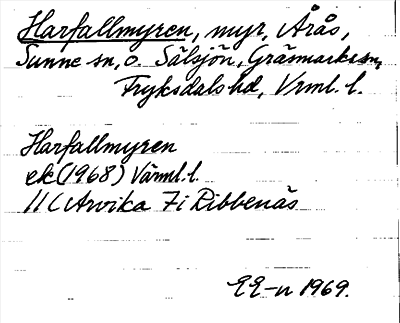 Harfallmyren, myr, Årås,
Sunne sn, o. Sälsjön, Gräsmarks sn,
Fryksdals hd, Vrml. l.
Harfallmyren
ek (1968) Värml. l.
11 C Arvika 7i Ribbenäs
EE-n 1969.